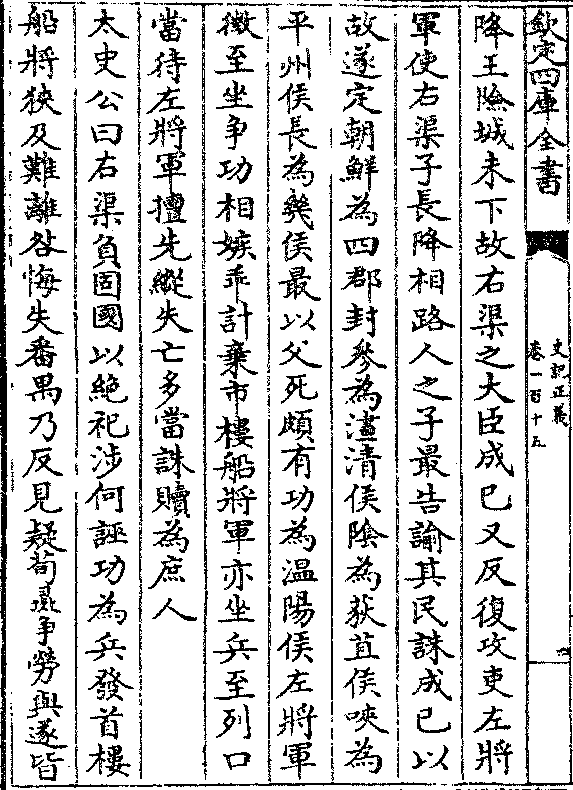 欽定四庫全書
史記正義
卷一百十五
降王險城未下故右渠之大臣成已又反復攻吏左將
軍使右渠子長降相路人之子最告諭其民誅成已以
故遂定朝鮮為四郡封參為澅清侯陰為荻苴侯唊為
平州侯長為幾侯最以父死頗有功為温陽侯左將軍
徴至坐争功相嫉乖計棄市樓船將軍亦坐兵至列口
當待左將軍擅先縱失亡多當誅贖為庶人
太史公曰右渠負固國以絶祀涉何誣功為兵發首樓
船將狹及難離咎悔失番禺乃反見疑荀彘争勞與遂皆